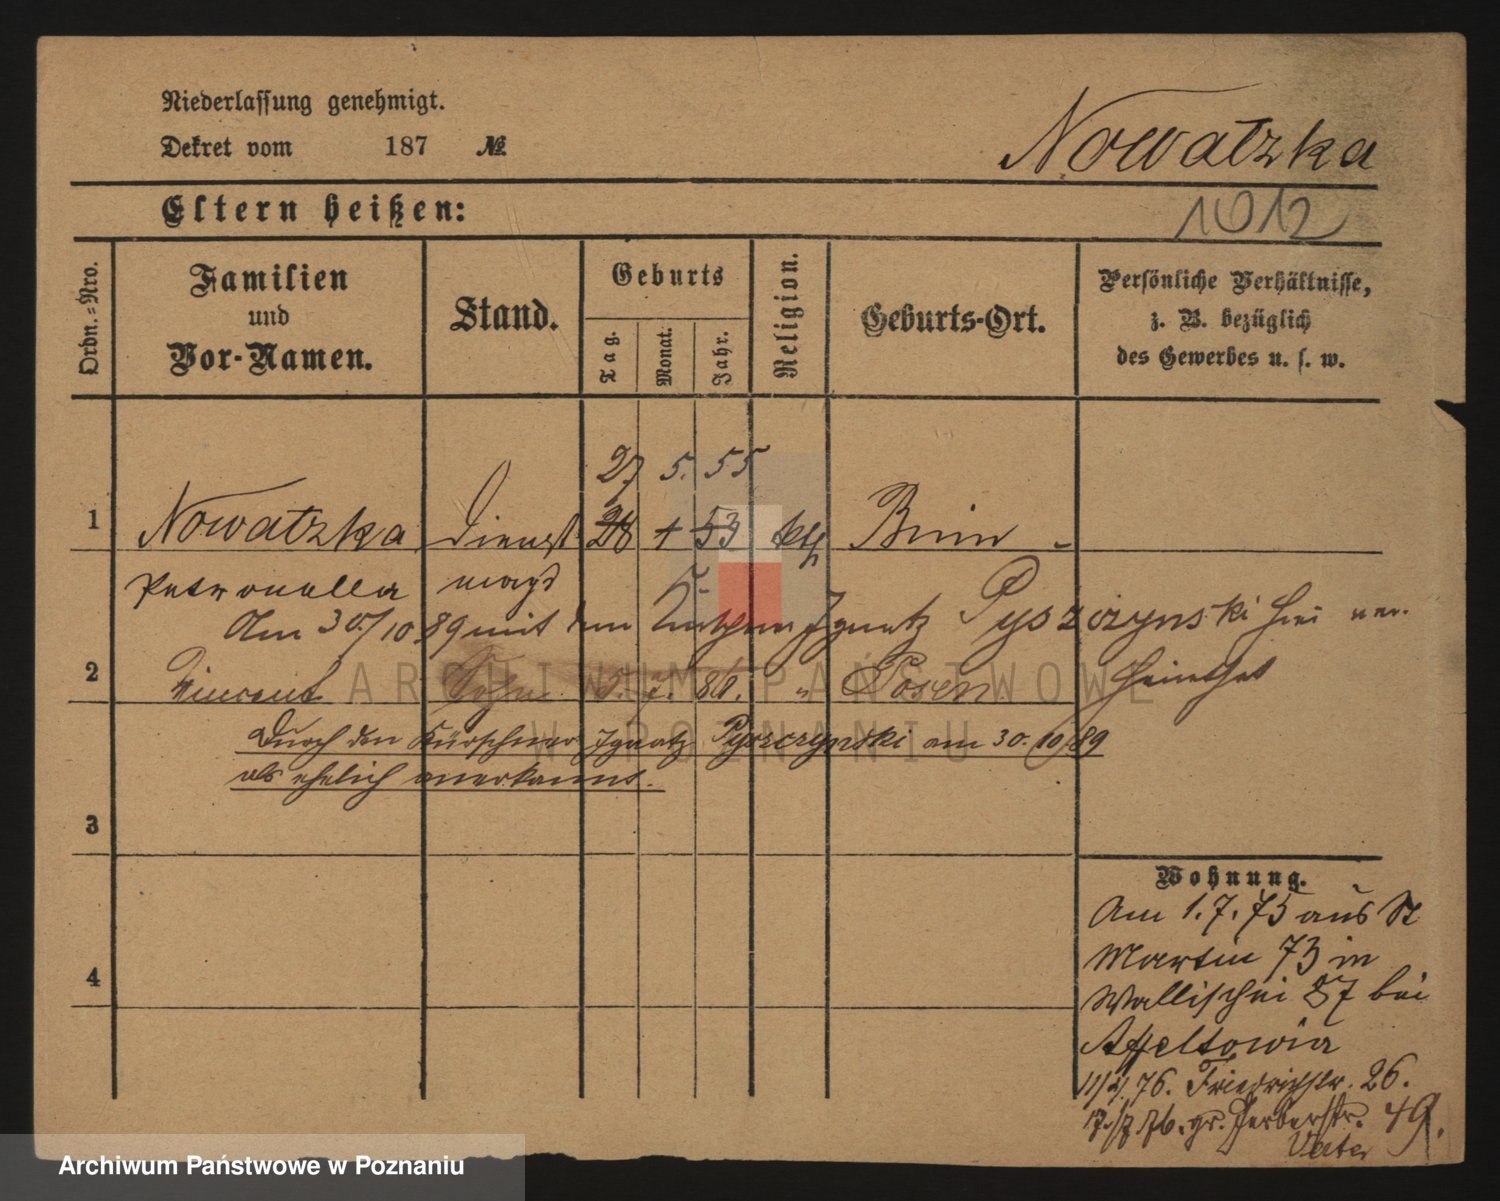 Niederlassung genehmigt.
Dekret vom 187 №
Nowatzka
1012
Eltern heißen:
Ordn.-Nro.
Familien
und
Vor-Namen.
Stand.
Geburts
Tag.
Monat.
Jahr.
Religion.
Geburts-Ort.
Persönliche Verhältnisse,
z. B. bezüglich
des Gewerbes u. s. w.
27 5. 55
1 Nowatzka Dienst 28 + 53 kth Bnin
Petronella magd 5.
Am 30/10 89 mit dem Kutscher Ignatz Pyszczynski hier ver-
heirathet
2 Vincent Sohn 5. 7. 80. " Posen
Durch den Kürschner Ignatz Pyszczynski am 30. 10/89
als ehelich anerkannt.
3
4
Wohnung.
Am 1.7.75 aus St
Martin 73 in
Wallischei 87 bei
Affeltowia
11/2/76. Friedrichstr. 26.
17/7 76. gr. Gerberstr. 49.
Vater
ARCHIWUM PAŃSTWOWE
W POZNANIU
Archiwum Państwowe w Poznaniu